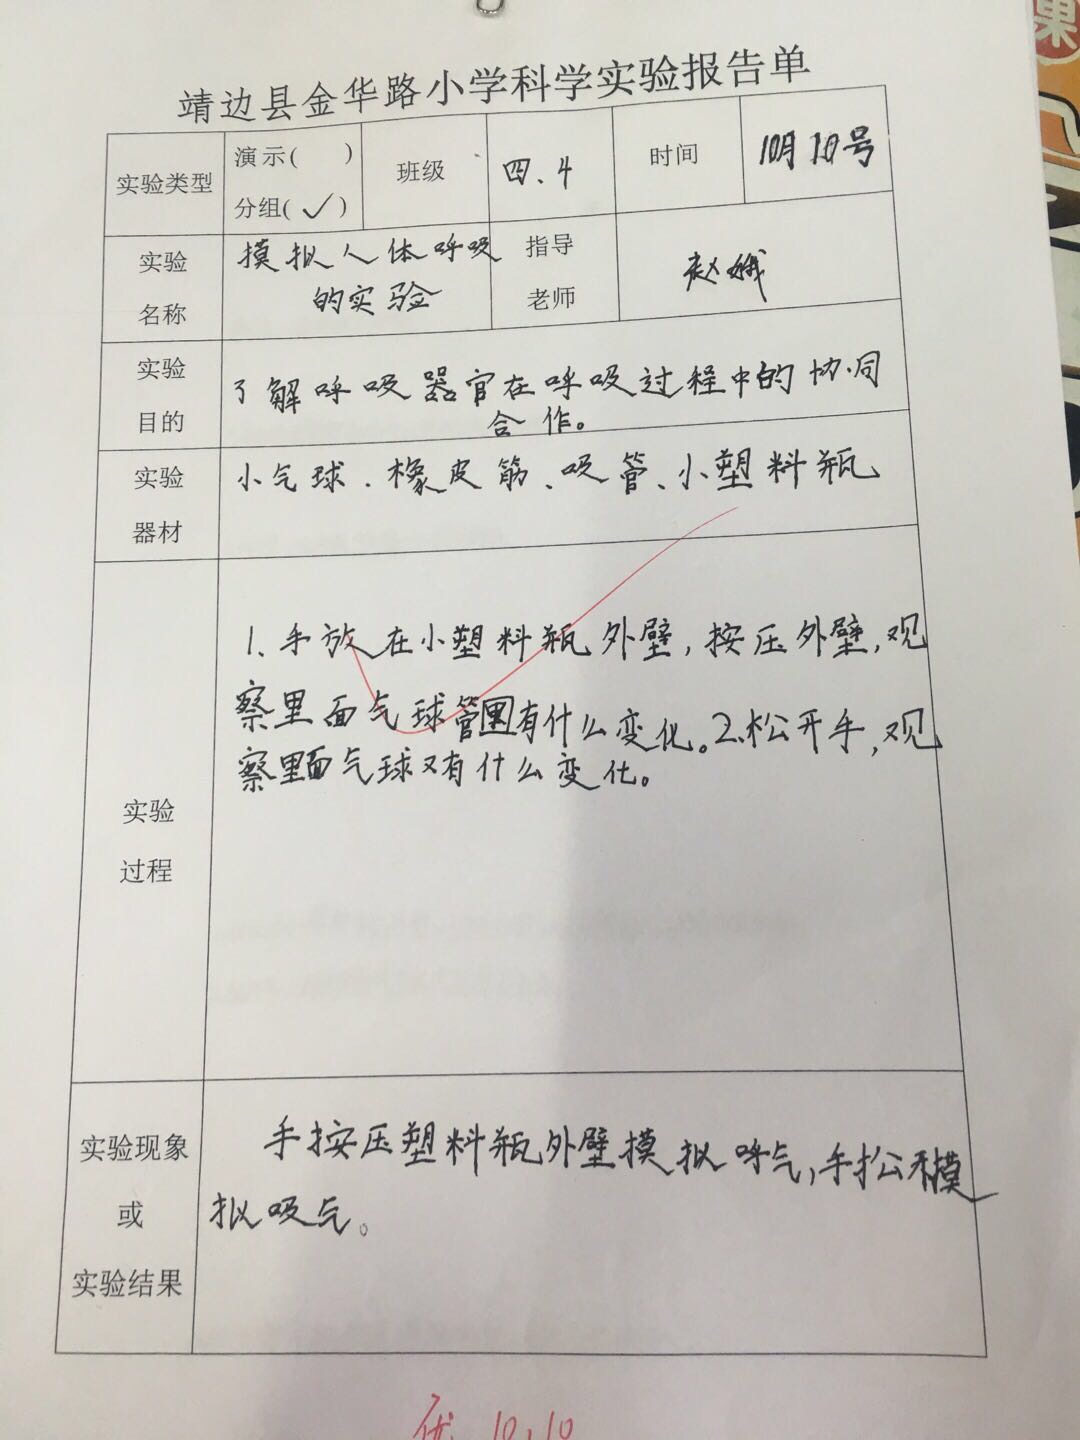 靖边县金华路小学科学实验报告单
实验类型
演示( )
分组(✓)
班级
四.4
时间
10月10号
实验
名称
摸拟人体呼吸
的实验
指导
老师
赵娥
实验
目的
了解呼吸器官在呼吸过程中的协同
合作。
实验
器材
小气球、橡皮筋、吸管、小塑料瓶
实验
过程
1、手放在小塑料瓶外壁,按压外壁,观
察里面气球管里有什么变化。2、松开手,观
察里面气球又有什么变化。
实验现象
或
实验结果
手按压塑料瓶外壁摸拟呼气,手松开摸
拟吸气。
优 10.10
果